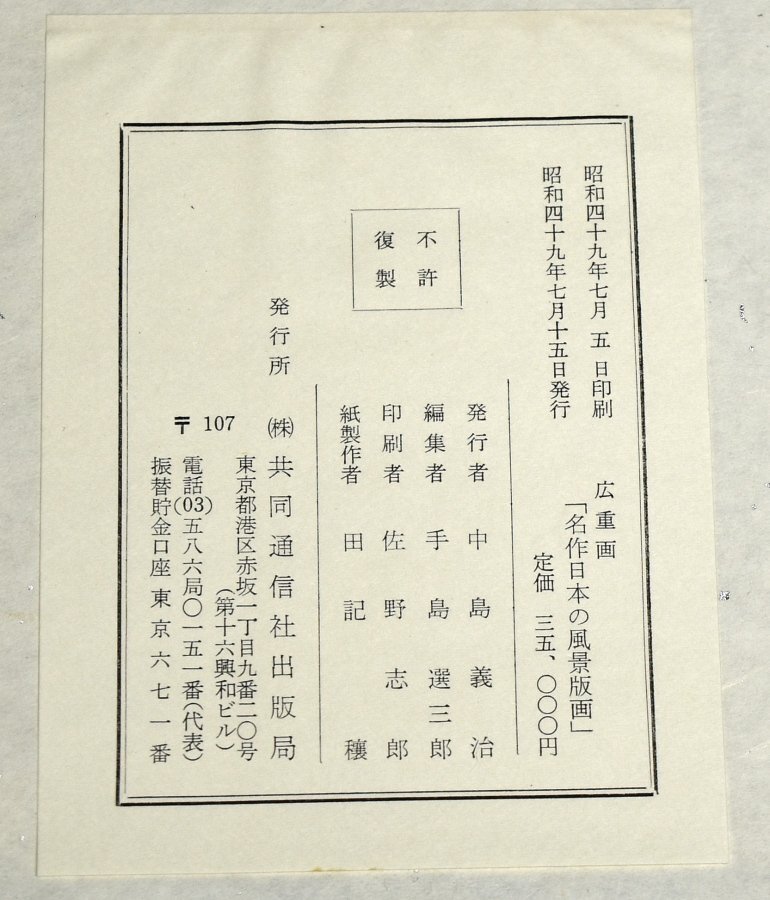 昭和四十九年七月 五 日印刷
昭和四十九年七月十五日発行
広重画
「名作日本の風景版画」
定価 三五、〇〇〇円
発行者 中島義治
編集者 手島選三郎
印刷者 佐野志郎
紙製作者 田記穣
不許
復製
発行所 ㈱共同通信社出版局
東京都港区赤坂一丁目九番二〇号
(第十六興和ビル)
〒107
電話(03)五八六局〇一五一番(代表)
振替貯金口座 東京六七一番